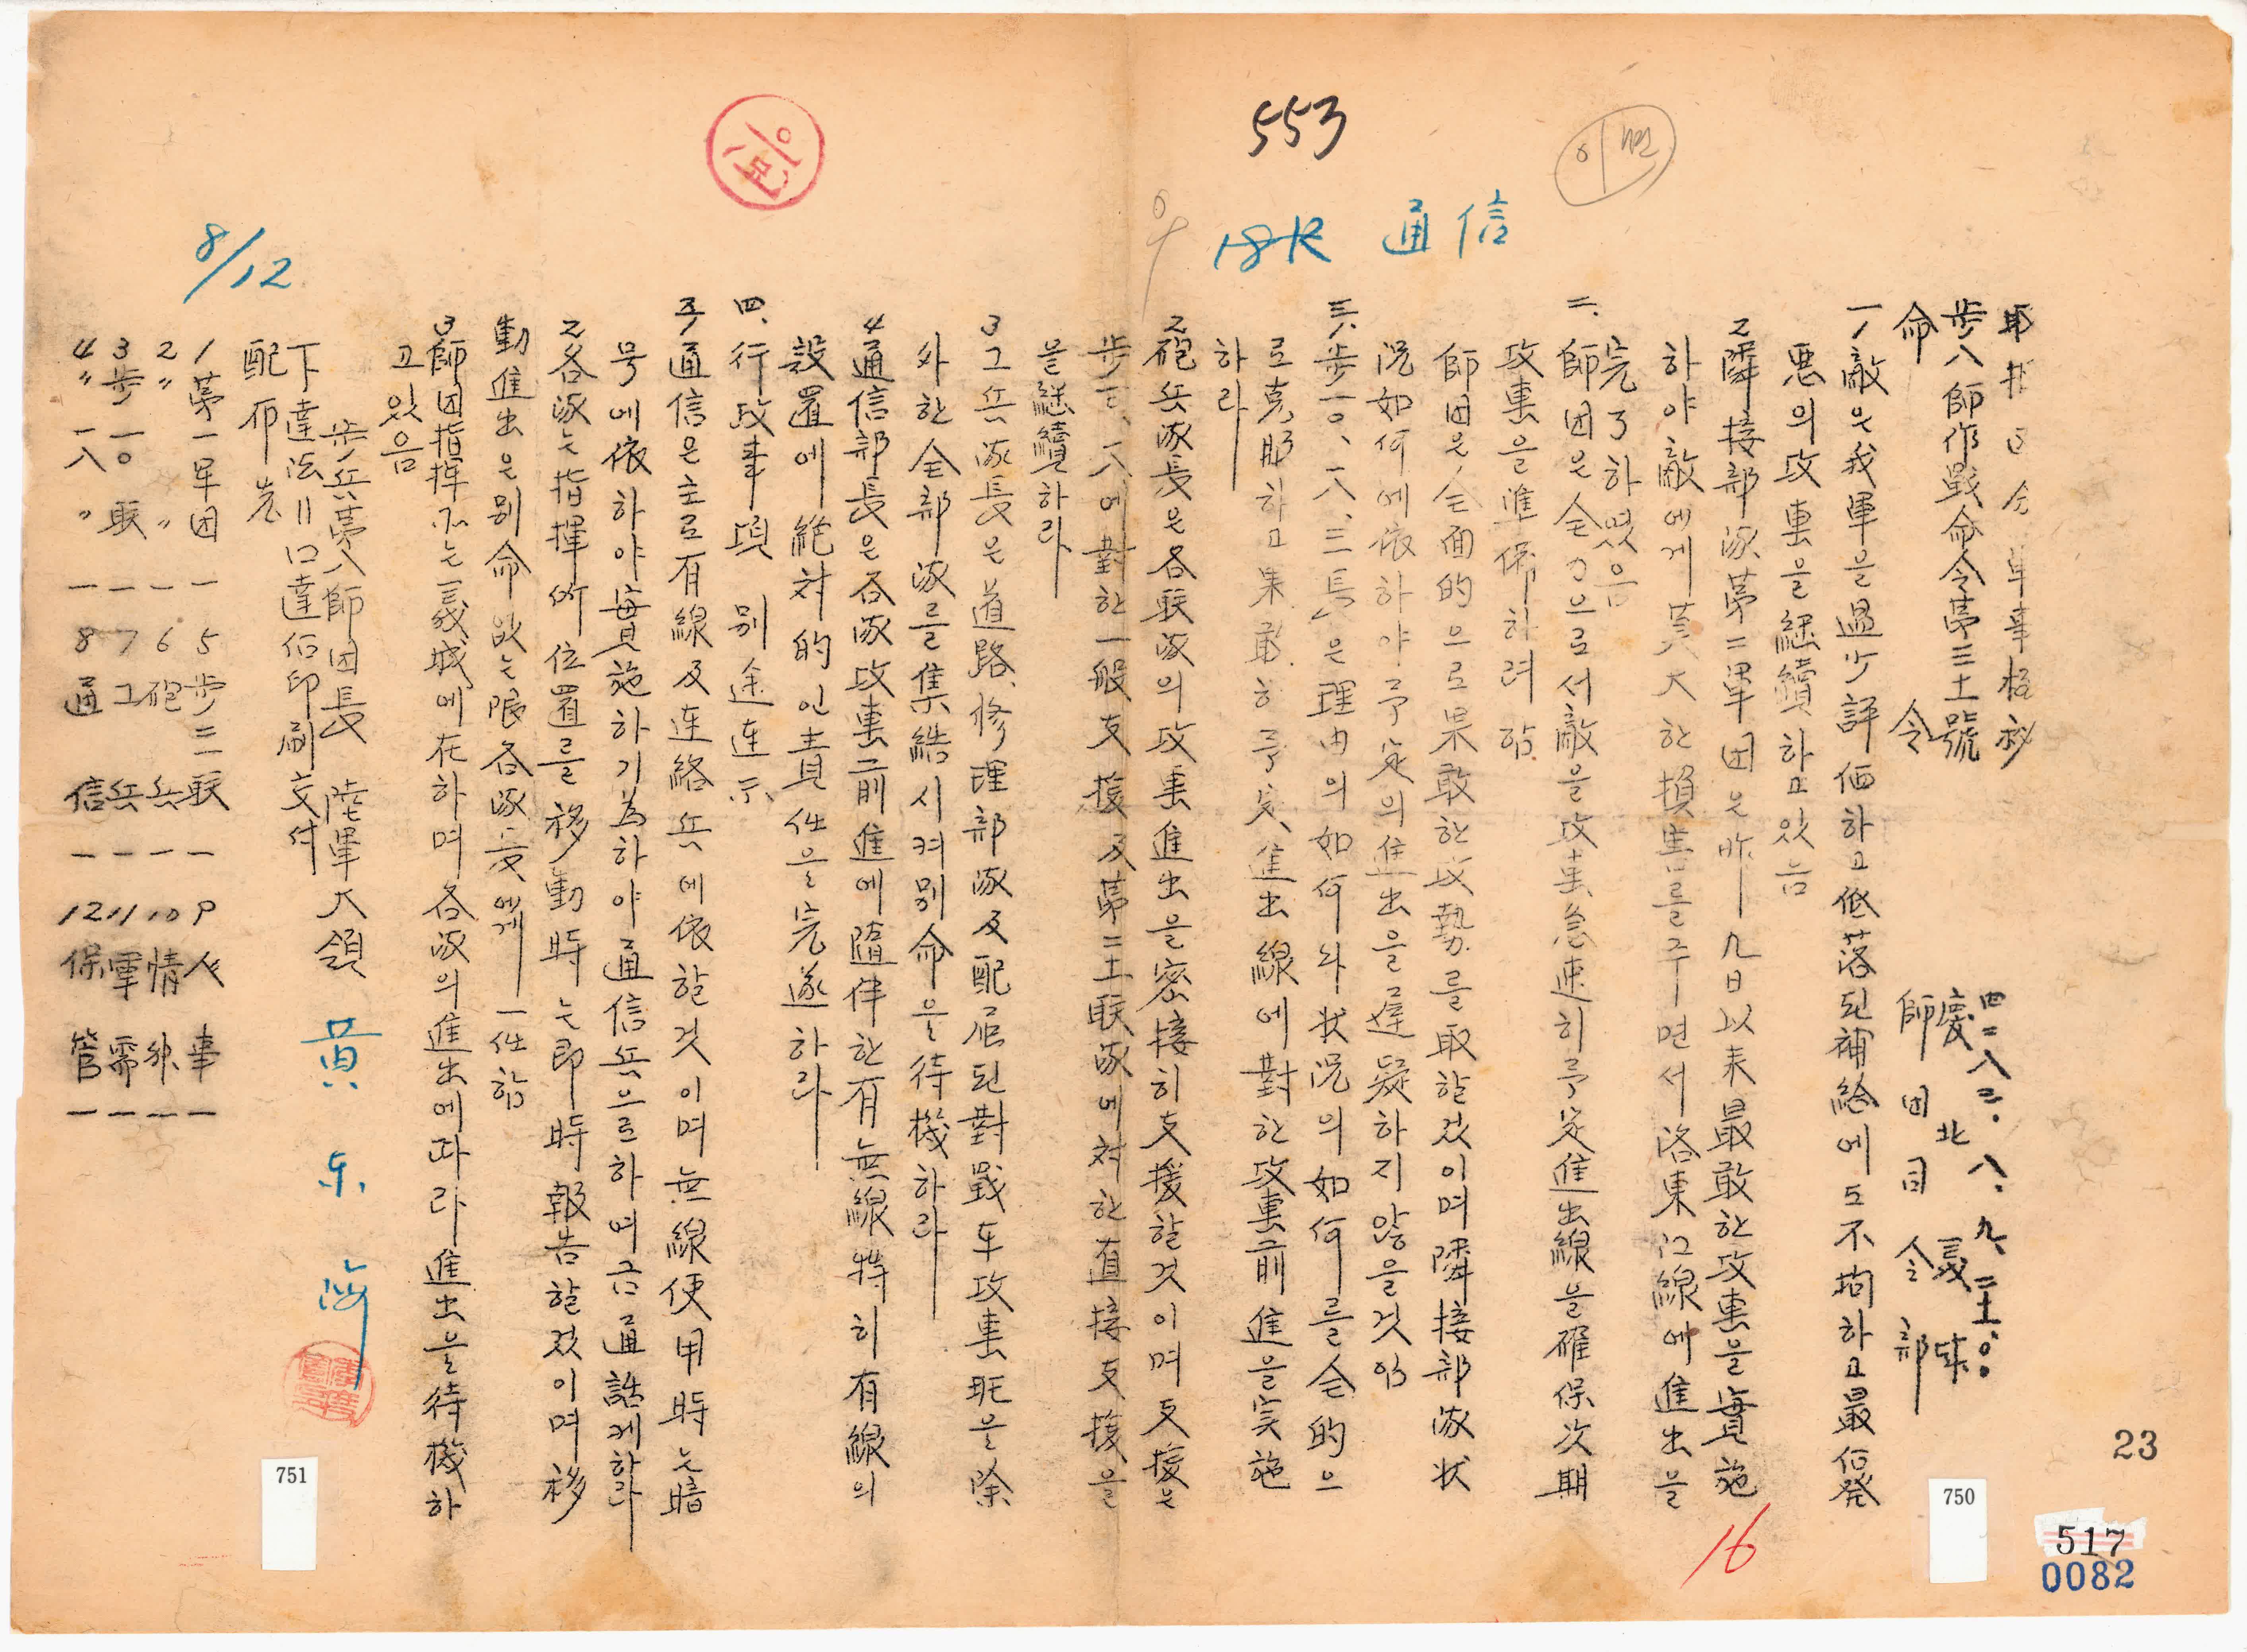 553
이면
18R 通信
步八師作戰命令第二十號
命 令
四二八三. 八. 九. 二十:00
慶 北 義 城
師 団 司 令 部
一, 1 敵은 我軍을 過少評価하고 低落된 補給에도 不拘하고 最后発
悪의 攻撃을 継続하고 있음
2 隣接部隊 第二軍団은 昨 九日以来 最敢한 攻撃을 實施
하야 敵에게 莫大한 損害를 주면서 洛東江線에 進出을
完了하였음
二. 師団은 全力으로서 敵을 攻撃 急速히 予定進出線을 確保 次期
攻撃을 準備하려 함
師団은 全面的으로 果敢한 攻勢를 取할 것이며 隣接部隊 状
況 如何에 依하야 予定의 進出을 遅疑하지 않을 것임
三, 1. 步一0、一八、三長은 理由의 如何와 状況의 如何를 全的으
로 克服하고 果敢히 予定 進出線에 對한 攻撃前進을 実施
하라
2 砲兵隊長은 各联隊의 攻撃進出을 密接히 支援할 것이며 支援은
步一0、一八에 對한 一般支援 及 第二十一联隊에 対한 直接支援을
을 継續하라
3 工兵隊長은 道路修理部隊 及 配屈된 對戰車攻撃班을 除
外한 全部隊를 集結시켜 別命을 待機하라
4 通信部長은 各隊攻撃前進에 隨伴한 有無線 特히 有線의
設置에 絶対的인 責任을 完遂하라
四、行政事項 別途連示
五, 1 通信은 主로 有線 及 連絡兵에 依할 것이며 無線使用時는 暗
号에 依하야 實施하기 為하야 通信兵으로 하여금 通話케하라
2 各隊는 指揮所位置를 移動時는 即時 報告할 것이며 移
動進出은 別命 없는 限 各隊長에게 一任함
3 師団指揮所는 義城에 在하며 各隊의 進出에 따라 進出을 待機하
고 있음
步兵第八師団長 陸軍大領 黄 东 海
下達法=口達后印刷交付
配布先
1 第一军団 一 5 步三联 一 9 人 事 一
2 〃 一 6 砲 兵 一 10 情 処 一
3 步一0联 一 7 工 兵 一 11 軍 需 一
4 〃 一八 〃 一 8 通 信 一 12 保 管 一
8/12
16
23
750
751
517
0082